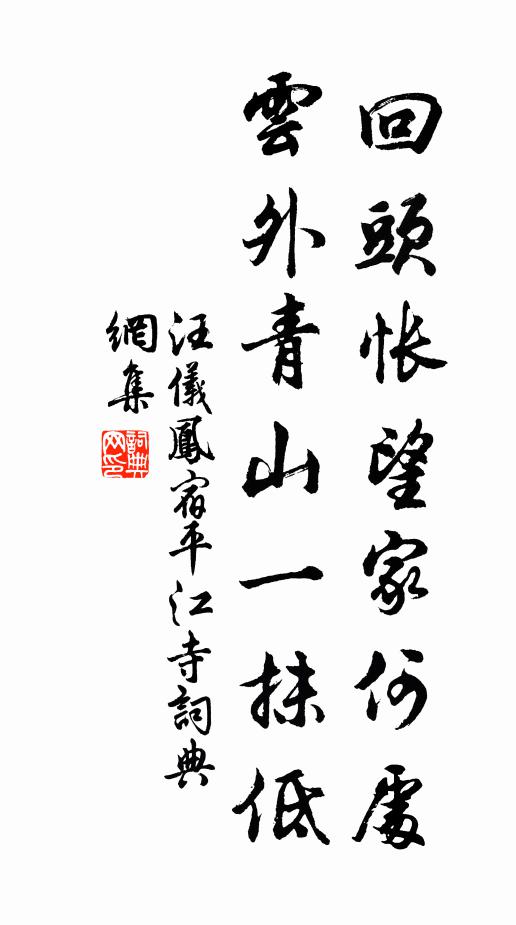 回頭悵望家何處
雲外青山一抹低
汪儀鳳宿平江寺詞典
網集
詞典
网印